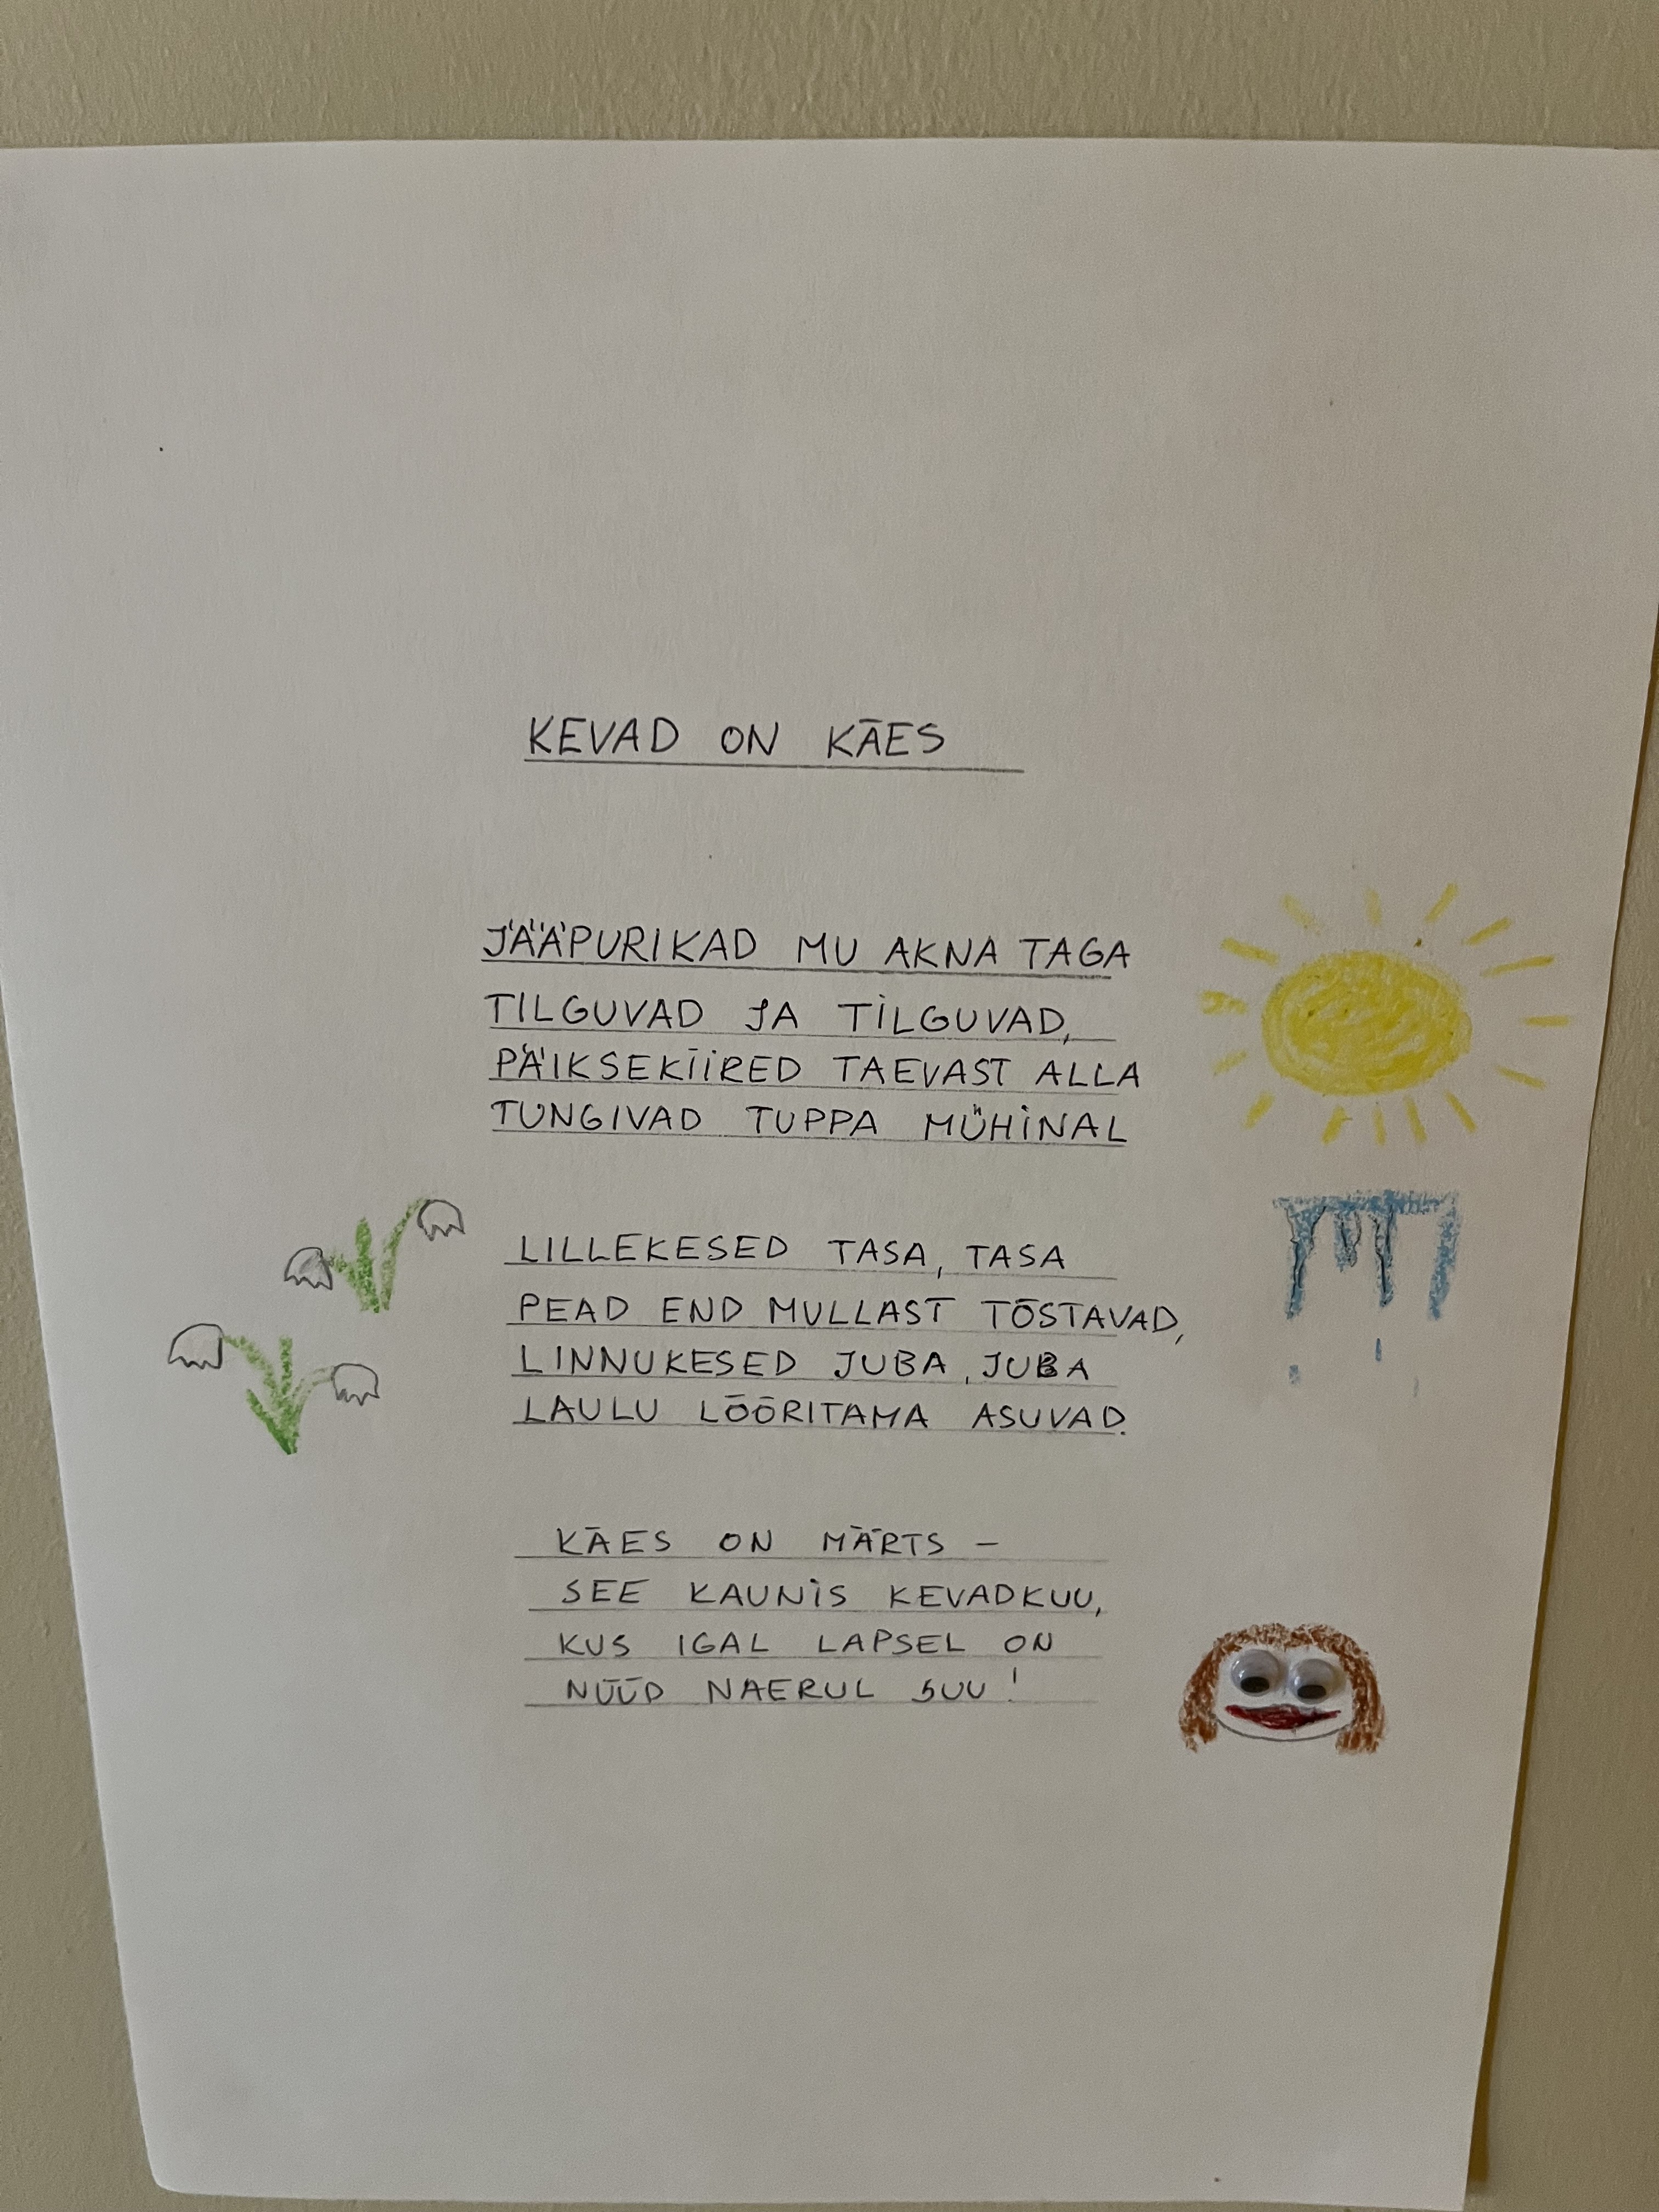 KEVAD ON KÄES
JÄÄPURIKAD MU AKNA TAGA
TILGUVAD JA TILGUVAD,
PÄIKSEKIIRED TAEVAST ALLA
TUNGIVAD TUPPA MÜHINAL
LILLEKESED TASA, TASA
PEAD END MULLAST TÕSTAVAD,
LINNUKESED JUBA, JUBA
LAULU LÕÕRITAMA ASUVAD.
KÄES ON MÄRTS –
SEE KAUNIS KEVADKUU,
KUS IGAL LAPSEL ON
NÜÜD NAERUL SUU!